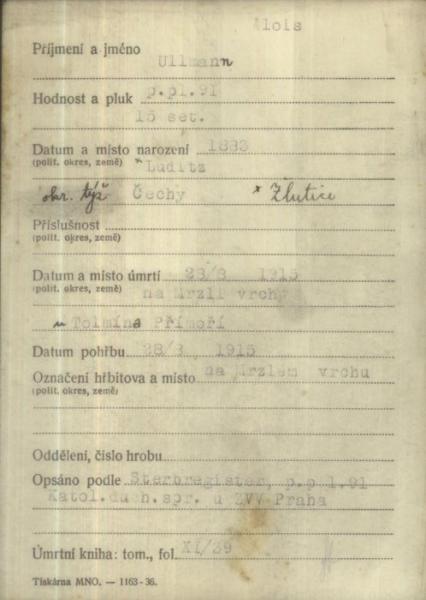 Alois
Příjmení a jméno Ullmann
Hodnost a pluk p.pl.91
15 set.
Datum a místo narození 1883
(polit. okres, země) * Luditz
okr. týž Čechy * Žlutice
Příslušnost
(polit. okres, země)
Datum a místo úmrtí 28/8 1915
(polit. okres, země) na Mrzli vrchy
u Tolmína Přímoří
Datum pohřbu 28/8, 1915
Označení hřbitova a místo na Mrzlem vrchu
(polit. okres, země)
Oddělení, číslo hrobu
Opsáno podle Sterbregister, p.p l.91
Katol.duch.spr. u ZVV Praha
Úmrtní kniha: tom., fol. XI/39
Tiskárna MNO. — 1163-36.